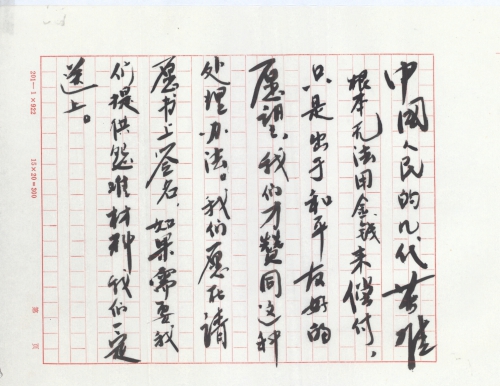 中國人民的几代苦难
根本无法用金钱来偿付，
只是出于和平友好的
愿望，我们才赞同这种
处理办法。我们愿在请
愿书上签名，如果需要我
们提供难材料我们一定
送上。
15×20=300
第 页